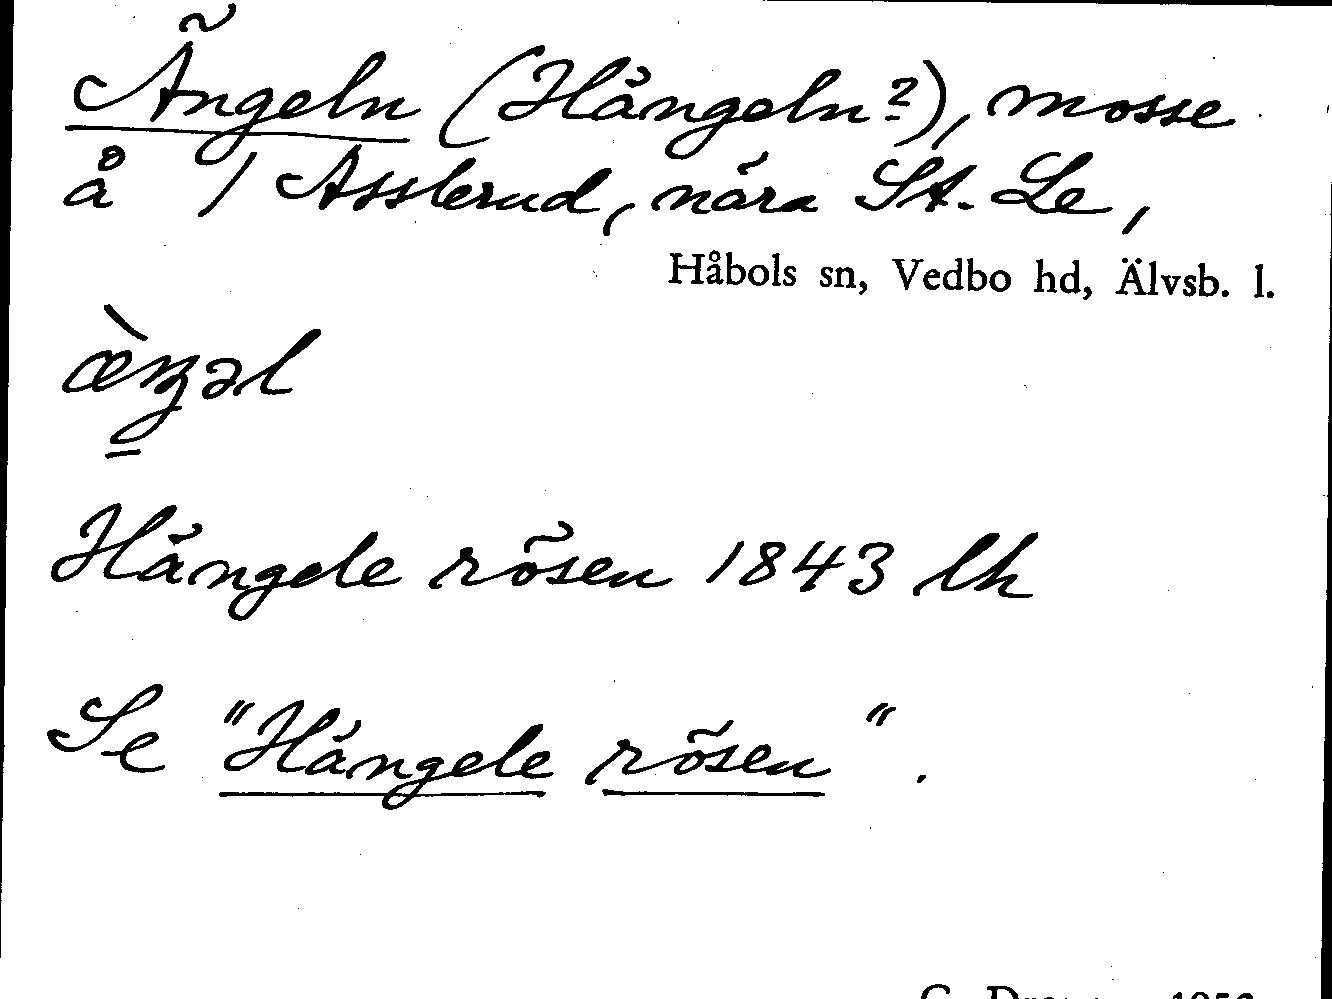 Ängeln (Hängeln?), mosse
å 1 Asslerud, nära St. Le,
Håbols sn, Vedbo hd, Älvsb. l.
æ̀ŋəl
Hängele rösen 1843 lh
Se "Hängele rösen".